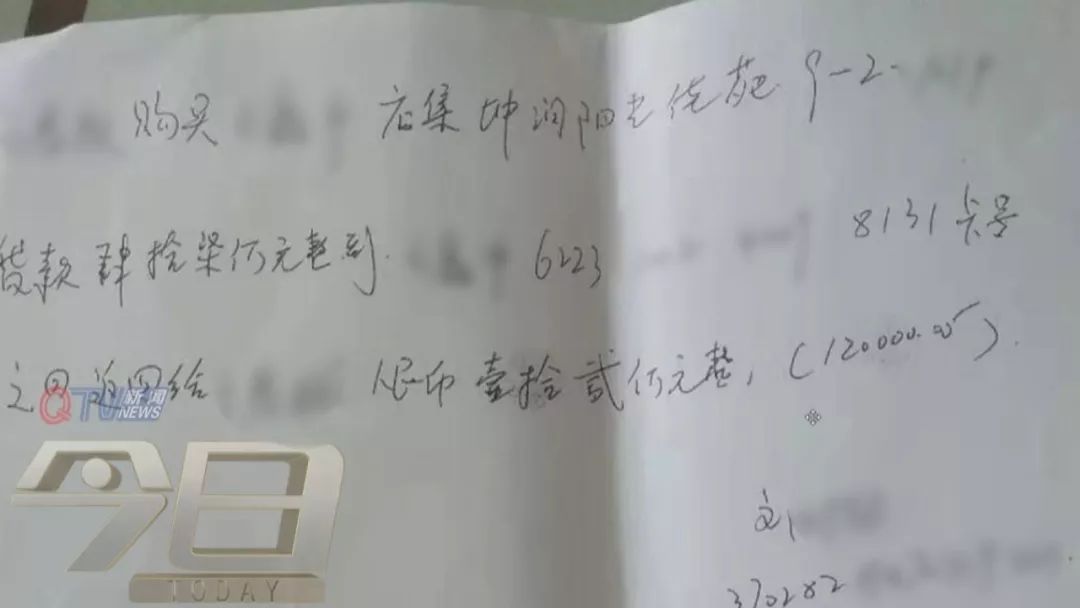 购买 店集 坤润阳光佳苑 9-2-
贷款肆拾柒万元整到 6223 8131卡号
之日返回给 人民币 壹拾贰万元整,(120000.00).
QTV 新闻 NEWS
今日
TODAY
370282